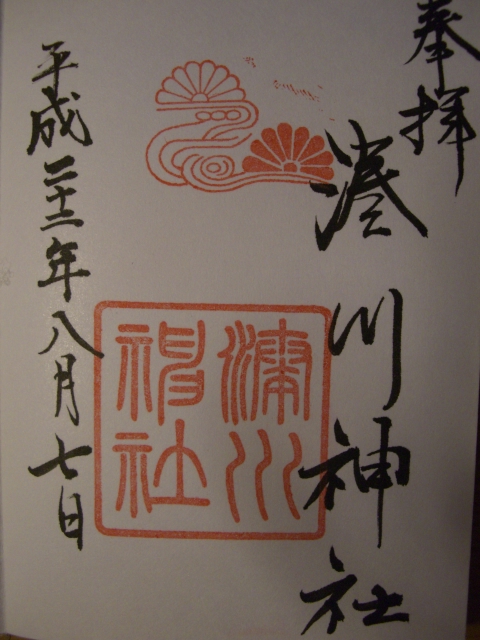 奉拝
湊川神社
湊川
神社
平成二十二年八月七日